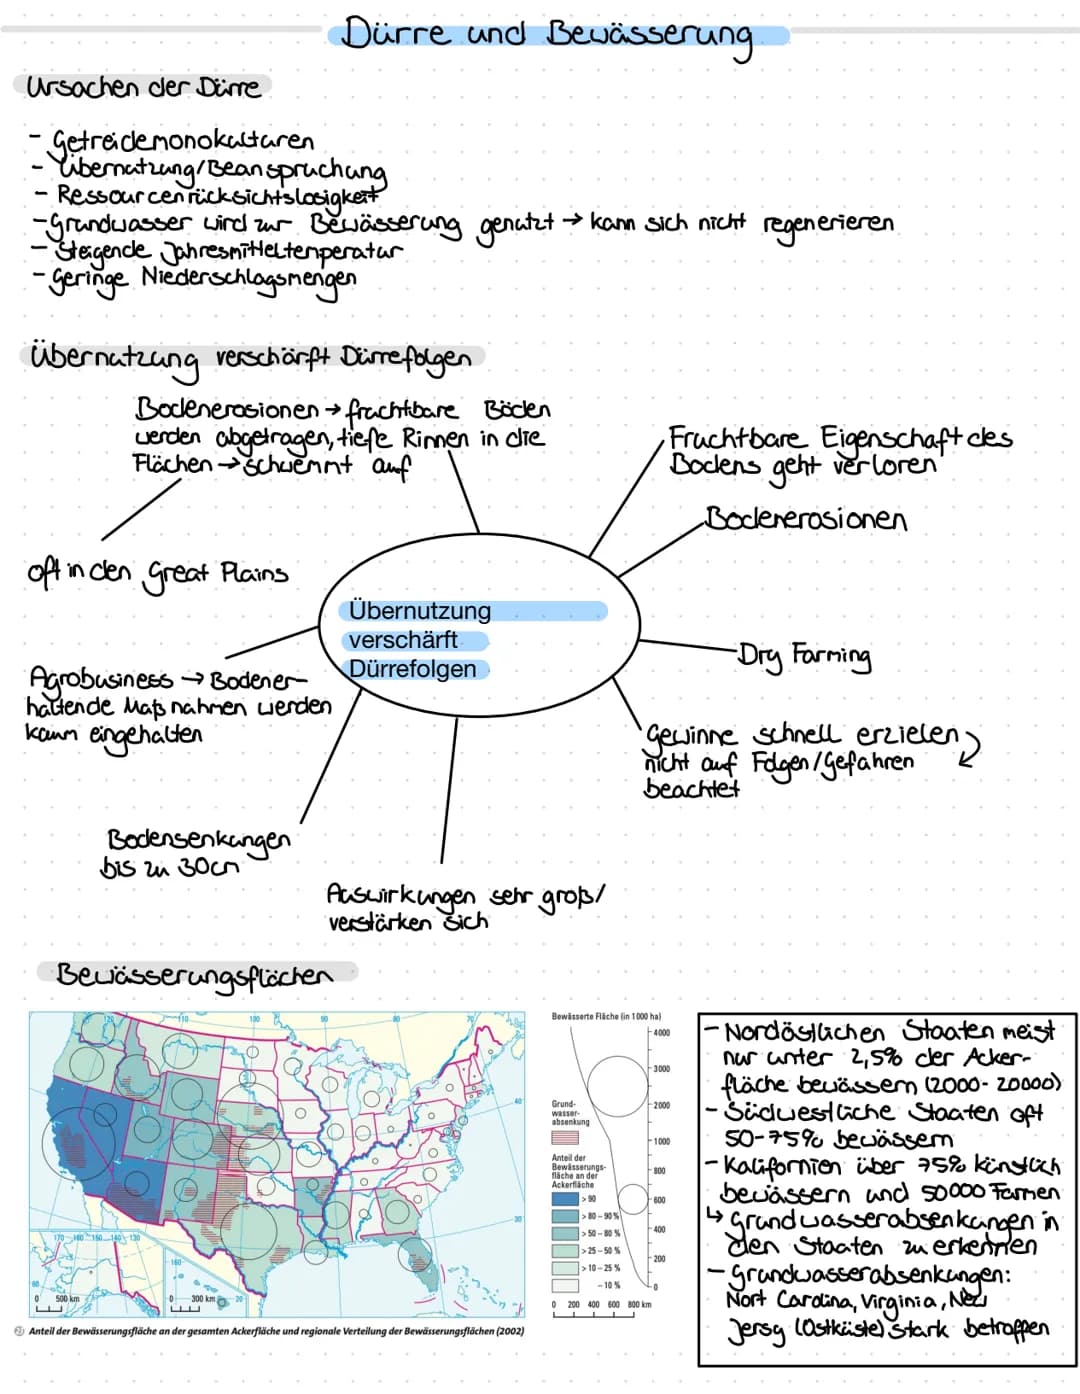 Dürre und Bewässerung
Ursachen der Dürre
- Getreidemonokulturen
- Übernutzung/Beanspruchung
- Ressourcenrücksichtslosigkeit
- Grundwasser wird zur Bewässerung genutzt → kann sich nicht regenerieren
- Steigende Jahresmitteltemperatur
- Geringe Niederschlagsmengen
Übernutzung verschärft Dürrefolgen
Bodenerosionen → fruchtbare Böden
werden abgetragen, tiefe Rinnen in die
Flächen → schwemmt auf
oft in den Great Plains
Fruchtbare Eigenschaft des
Bodens geht verloren
Bodenerosionen
Übernutzung
verschärft
Dürrefolgen
Dry Farming
Agrobusiness → Bodener-
haltende Maßnahmen werden
kaum eingehalten
Gewinne schnell erzielen
nicht auf Folgen/Gefahren
beachtet
Bodensenkungen
bis zu 30cm
Auswirkungen sehr groß/
verstärken sich
Bewässerungsflächen
120 110 100 90 80 70
40
30
170 160 150 140 130
60
160
20
0 500 km
0 300 km
Bewässerte Fläche (in 1000 ha)
4000
3000
2000
1000
800
600
400
200
0
Grund-
wasser-
absenkung
Anteil der
Bewässerungs-
fläche an der
Ackerfläche
> 90
> 80 – 90 %
> 50 – 80 %
> 25 – 50 %
> 10 – 25 %
– 10 %
0 200 400 600 800 km
Anteil der Bewässerungsfläche an der gesamten Ackerfläche und regionale Verteilung der Bewässerungsflächen (2002)
- Nordöstlichen Staaten meist
nur unter 2,5% der Acker-
fläche bewässern (2000-20000)
- Südwestliche Staaten oft
50-75% bewässern
- Kalifornien über 75% künstlich
bewässern und 50000 Farmen
↳ Grundwasserabsenkungen in
den Staaten zu erkennen
- Grundwasserabsenkungen:
Nort Carolina, Virginia, New
Jersy (Ostküste) stark betroffen